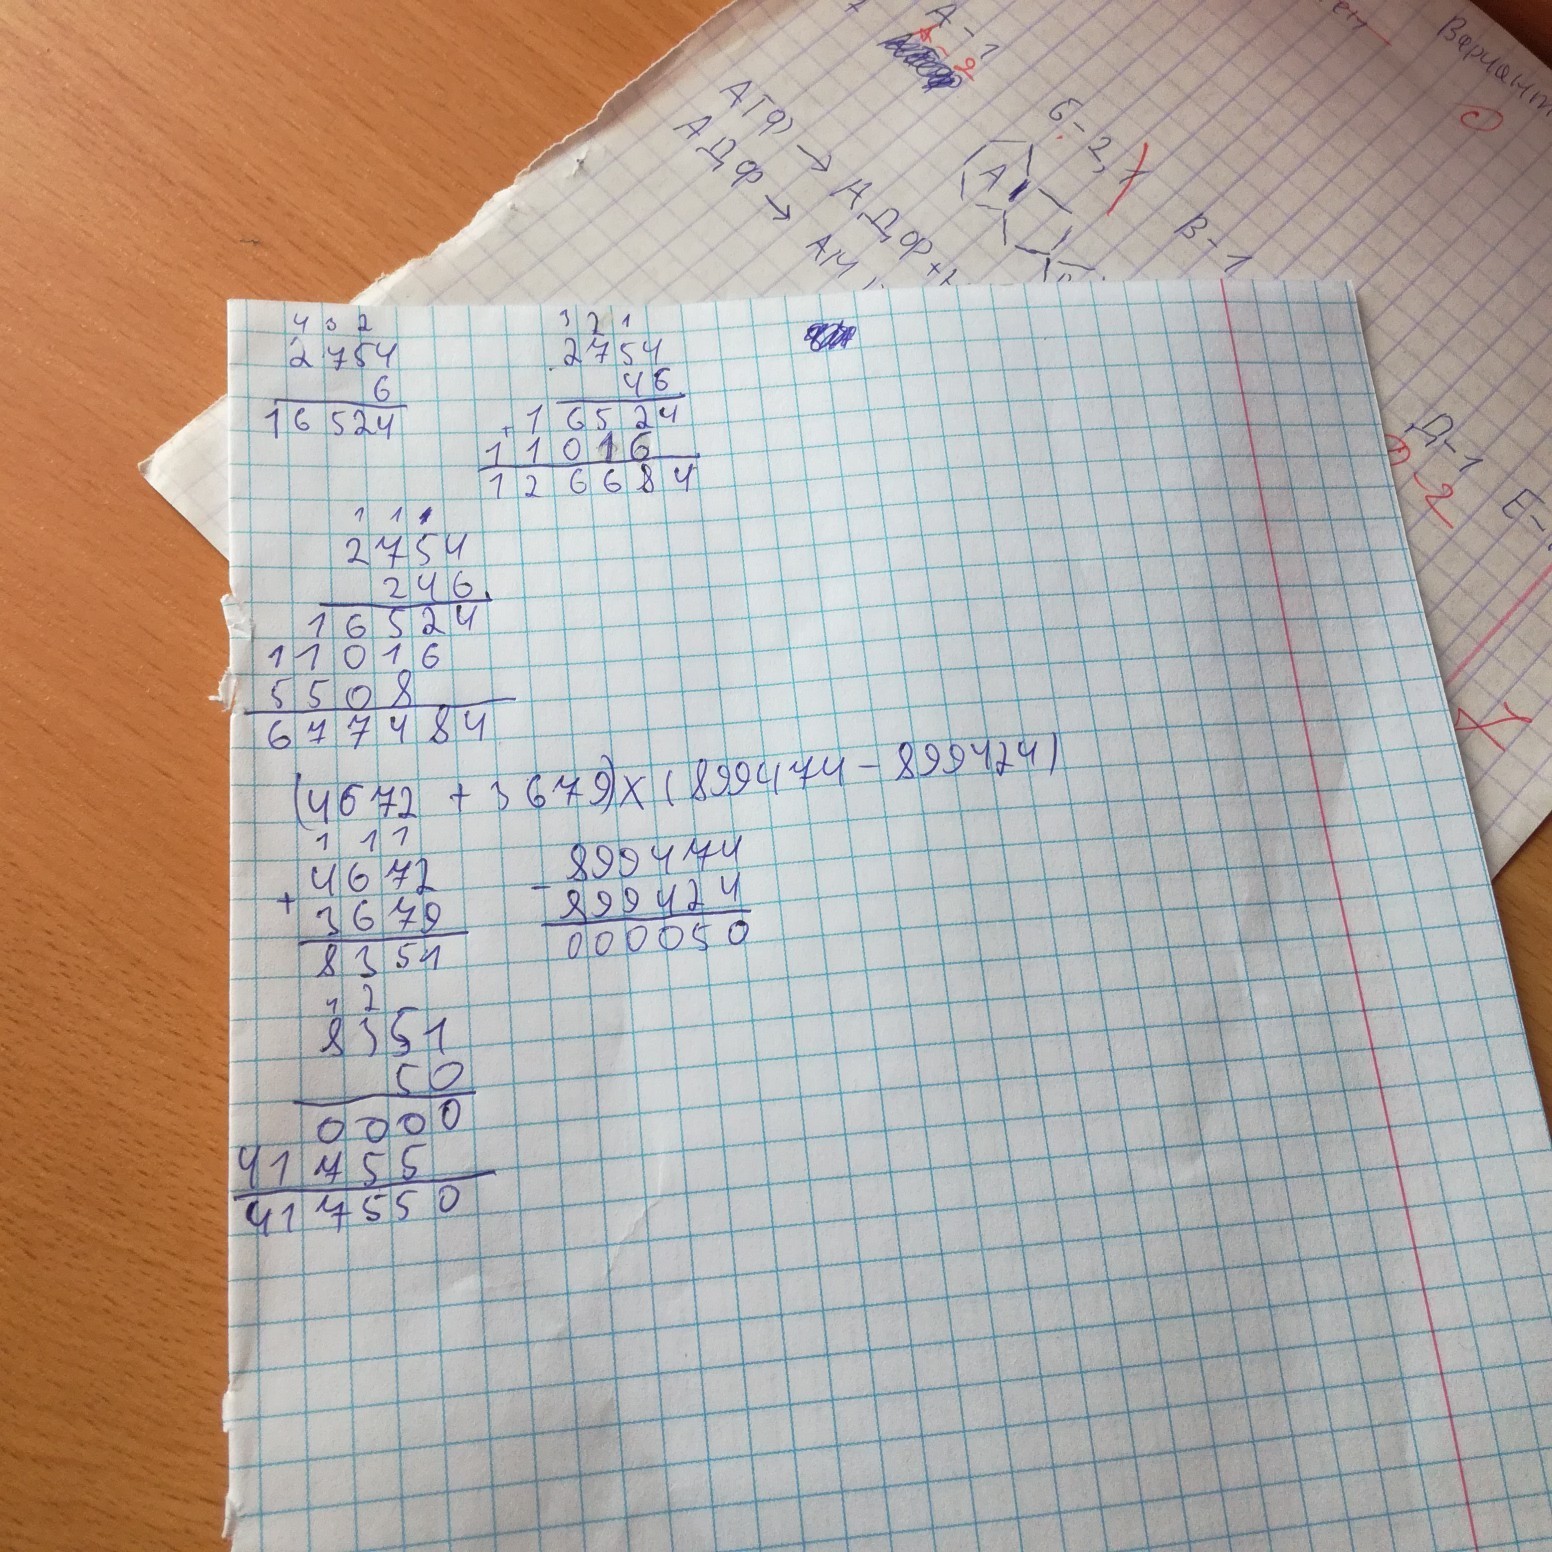 А-1
А-2
АТФ → АДФ+
АДФ → АМ
Б-2,
В-1
Вариант
Д-1
-2
Е-
4 3 2
2754
6
16524
3 2 1
2754
46
+ 16524
11016
126684
1 1 1
2754
246
16524
11016
5508
677484
(4672 + 3679)x(899474-899424)
1 1 1
4672
+ 3679
8351
899474
- 899424
000050
1 2
8351
50
0000
41755
417550